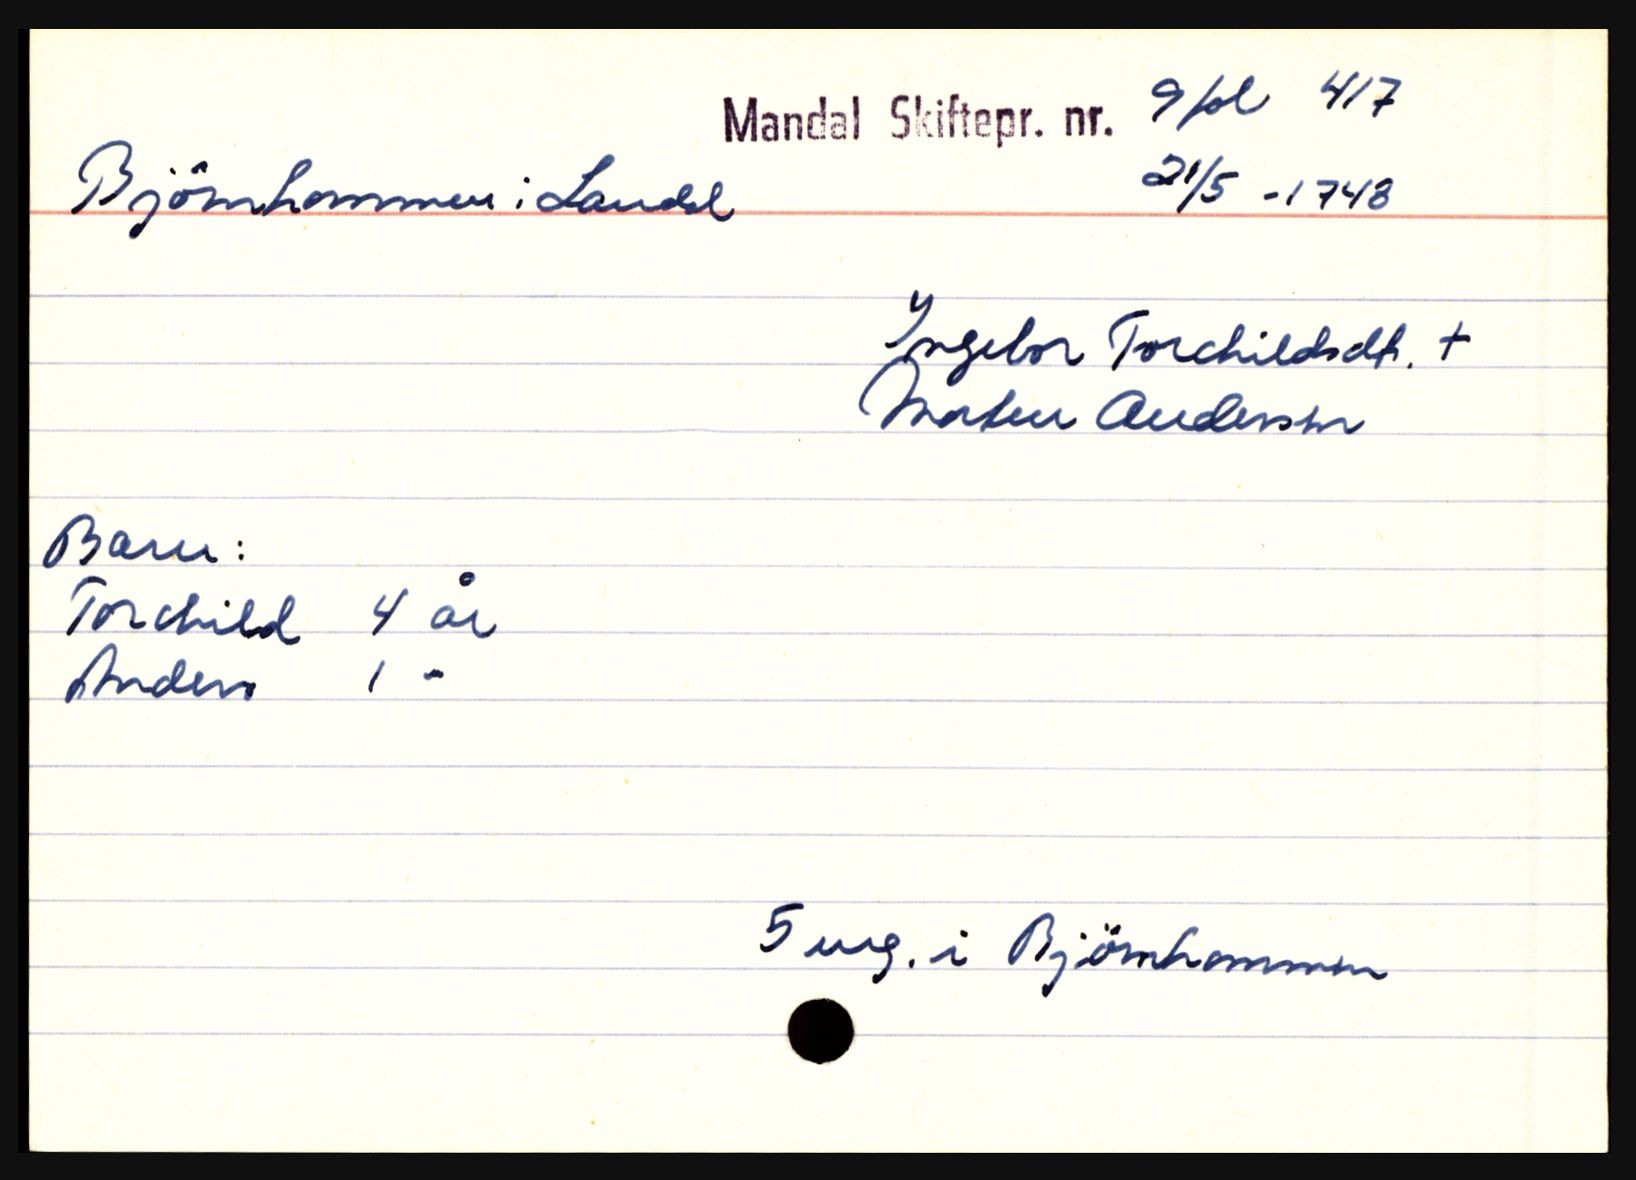 Mandal Skiftepr. nr. 9 fol 417
21/5 - 1748
Björnhommen i Landel
Ingebor Torchildsdt. +
Morten Andersen
Barn:
Torchild 4 år
Anders 1 -
5 eng. i Björnhommen